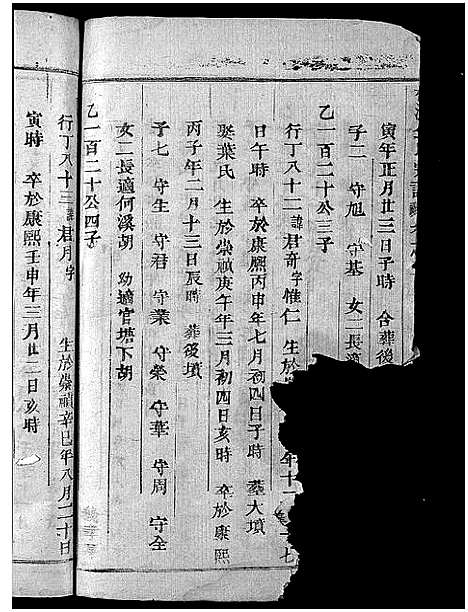 寅年正月廿三日子時 合葬後
子二 守旭 守基 女二長適
乙一百二十公三子
行丁八十二諱君奇字惟仁 生於 年十一
日午時 卒於康熙丙申年七月初四日子時 葬大墳
娶葉氏 生於崇禎庚午年三月初四日亥時 卒於康熙
丙子年二月十三日辰時 葬後墳
子七 守生 守君 守業 守榮 守華 守周 守全
女二長適何溪胡 幼適官塘下胡
乙一百二十公四子
行丁八十三諱君月字 生於崇禎辛巳年八月二十日
寅時 卒於康熙壬申年三月廿二日亥時